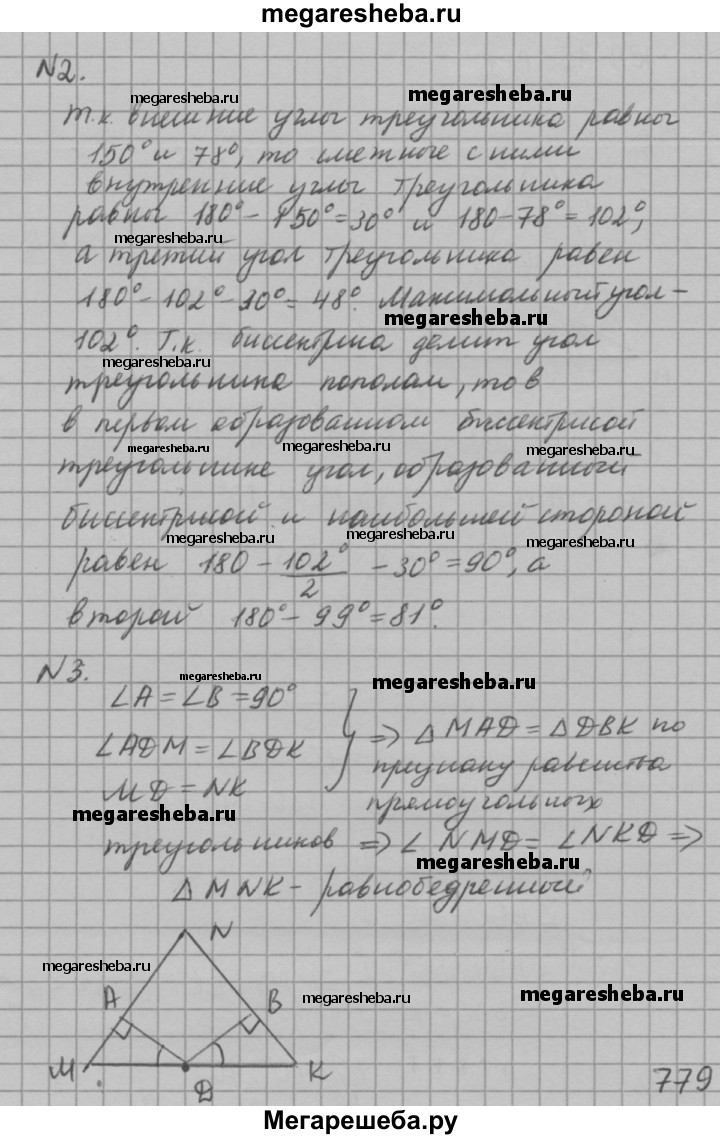 megaresheba.ru
N2.
megaresheba.ru
megaresheba.ru
т.к. внешние углы треугольника равны
150° и 78°, то смежные с ними
внутренние углы треугольника
равны 180° - 150° = 30° и 180 - 78° = 102°,
megaresheba.ru
а третий угол треугольника равен
180° - 102° - 30° = 48°. Максимальный угол -
megaresheba.ru
102°. Т.к. биссектриса делит угол
megaresheba.ru
треугольника пополам, то в
в первом образованном биссектрисой
megaresheba.ru
megaresheba.ru
megaresheba.ru
треугольнике угол, образованный
биссектрисой и наибольшей стороной
megaresheba.ru
megaresheba.ru
megaresheba.ru
равен 180 - 102°/2 - 30° = 90°, а
второй 180° - 99° = 81°.
N3.
megaresheba.ru
megaresheba.ru
∠A = ∠B = 90°
∠ADM = ∠BDK
MD = NK
⇒ △ MAD = △ DBK по
признаку равенства
прямоугольных
megaresheba.ru
треугольников ⇒ ∠ NMD = ∠NKD ⇒
megaresheba.ru
△ MNK - равнобедренный
N
megaresheba.ru
A
B
megaresheba.ru
megaresheba.ru
M
K
D
779
Мегарешеба.ру